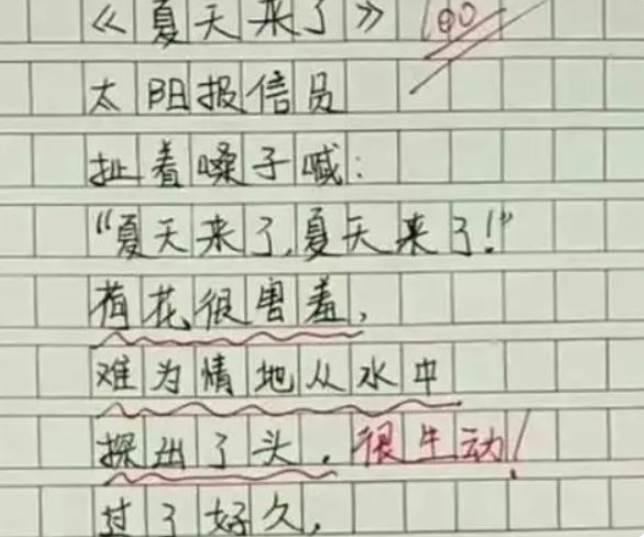 《夏天来了》 100
太阳报信员
扯着嗓子喊:
“夏天来了,夏天来了!”
荷花很害羞,
难为情地从水中
探出了头。很生动!
过了好久,